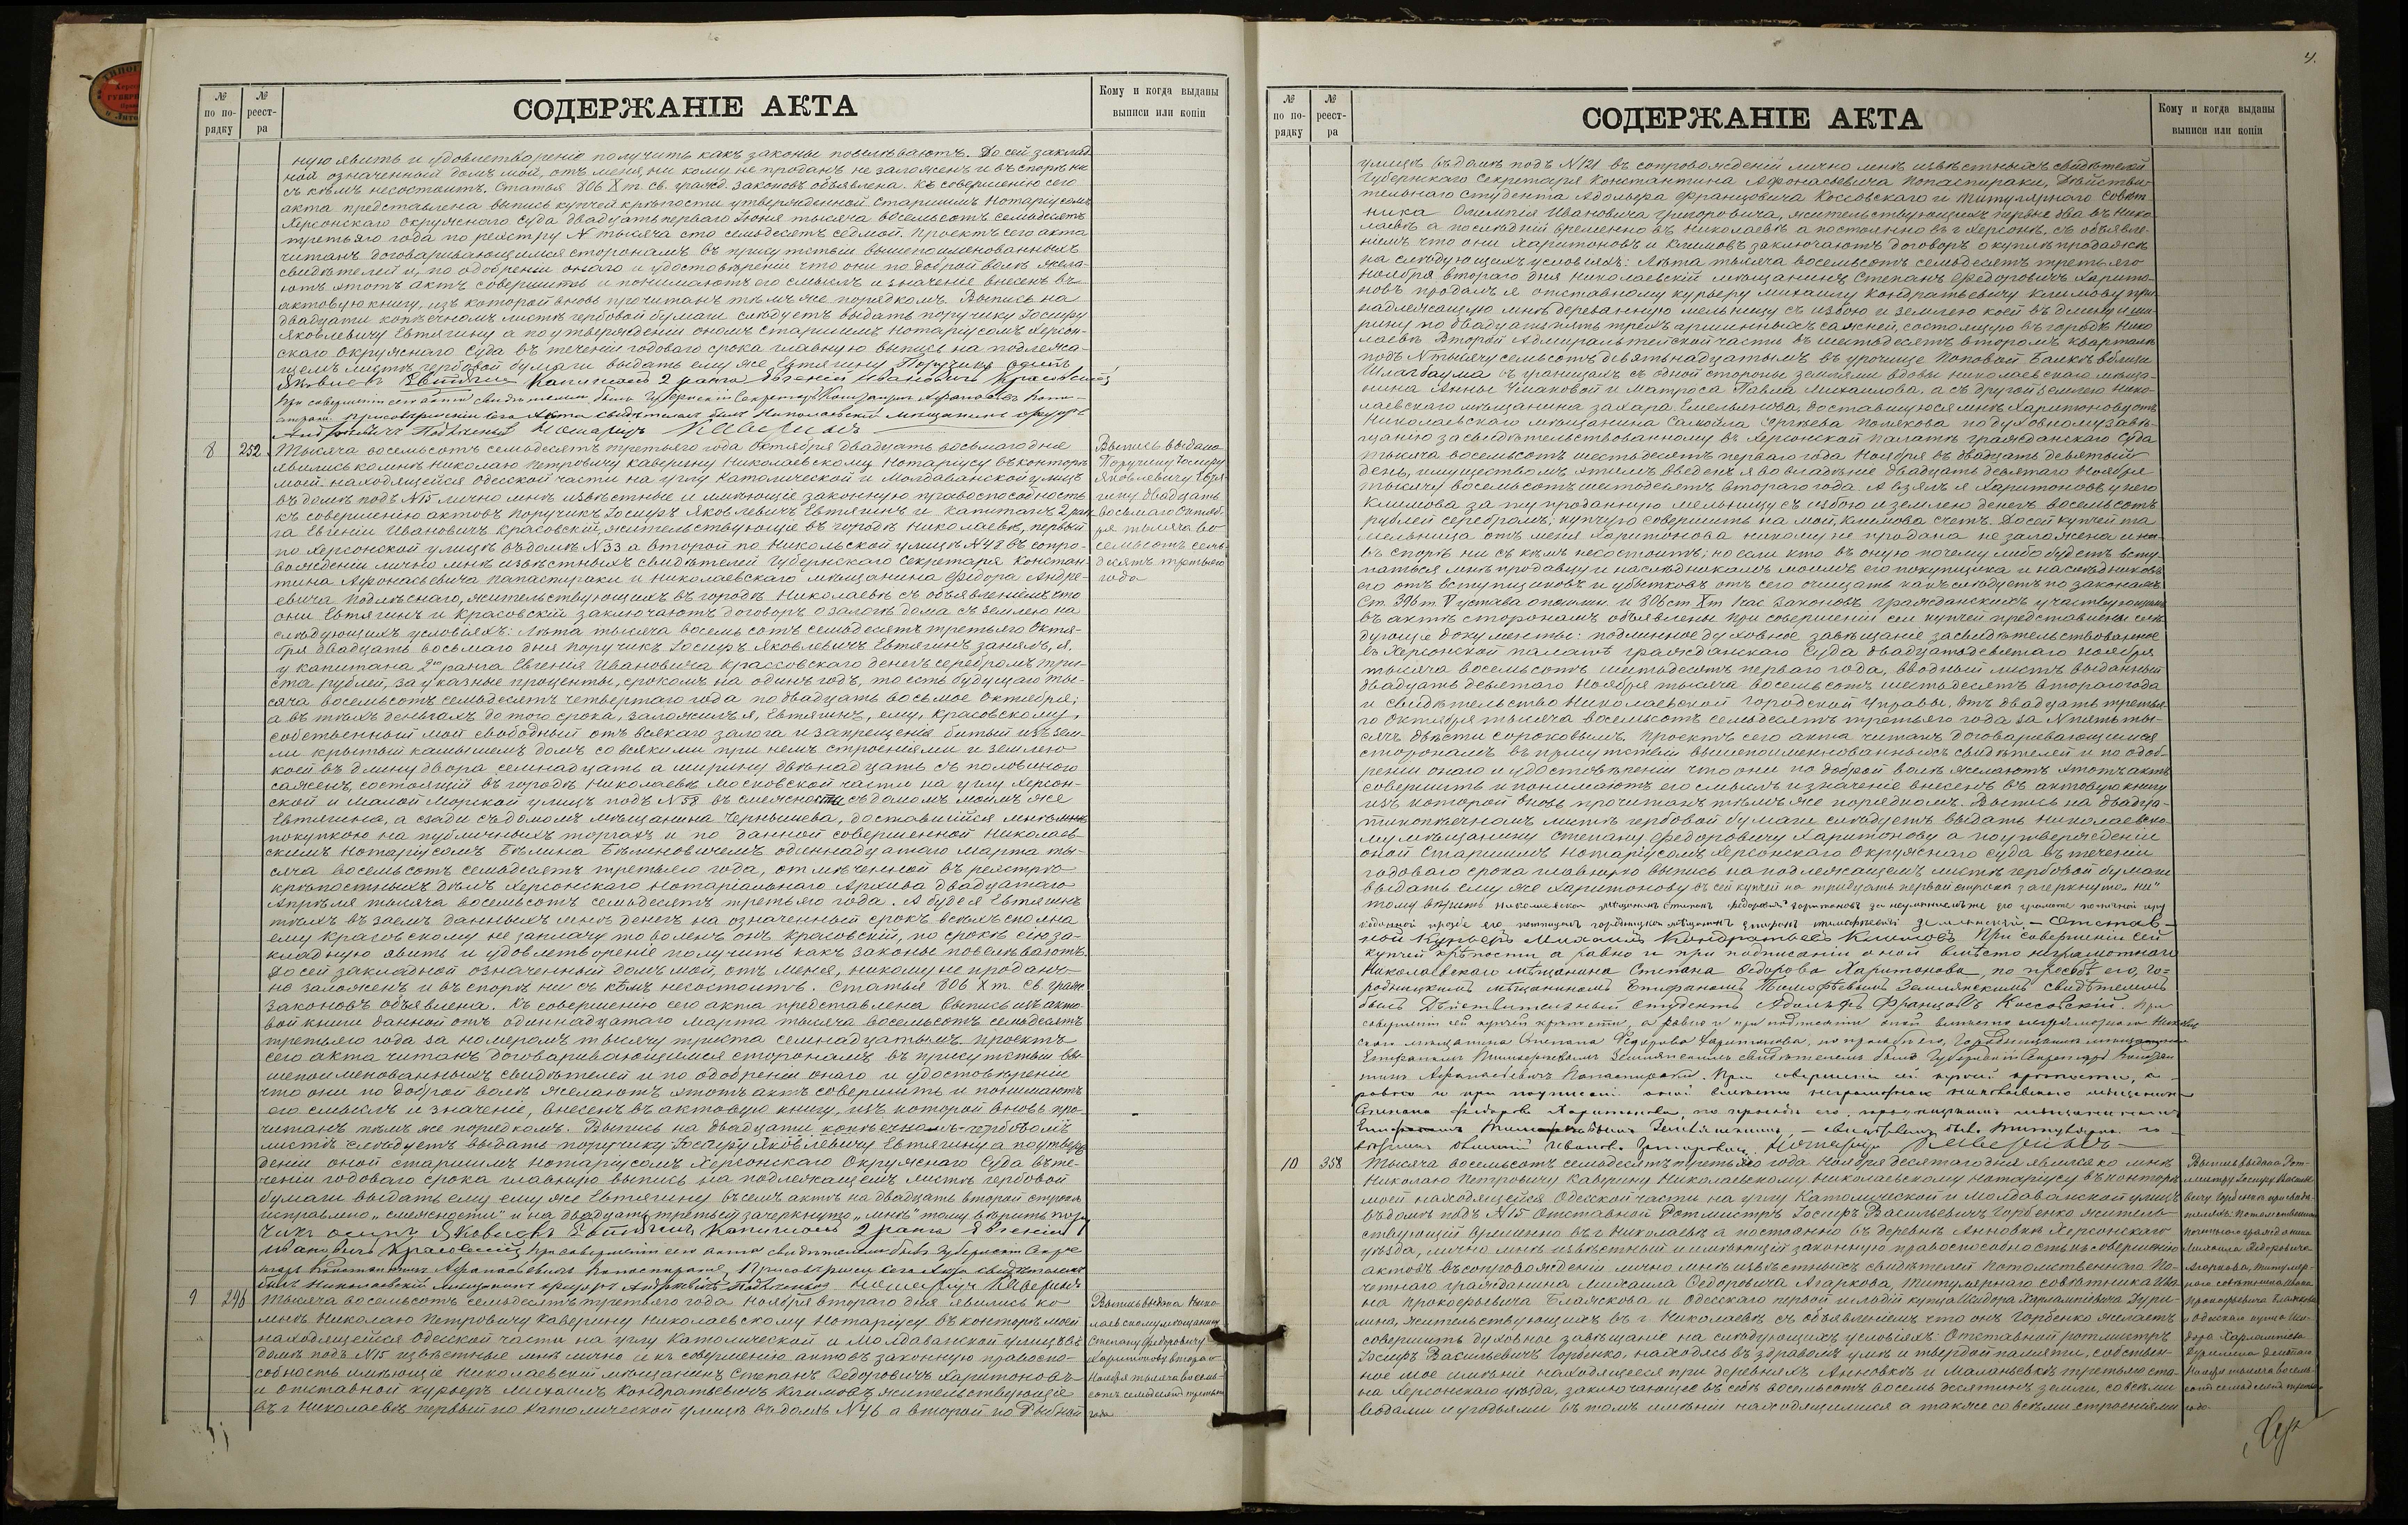 № по порядку
№ реестра
СОДЕРЖАНІЕ АКТА
Кому и когда выданы выписи или копіи
ную явить и удовлетвореніе получить какъ законы повелѣваютъ. До сей заклад
ной означенный домъ мой, отъ меня, ни кому не проданъ не заложенъ и въ спорѣ ни
съ кѣмъ несостоитъ. Статья 806 X т. св. гражд. законовъ объявлена. Къ совершенію сего
акта представлена выпись купчей крѣпости утвержденной Старшимъ Нотаріусомъ
Херсонскаго Окружнаго Суда двадцать перваго Іюня тысяча восемьсотъ семьдесятъ
третьяго года по реестру № тысяча сто семьдесятъ седмой. Проектъ сего акта
читанъ договаривающимся сторонамъ въ присутствіи вышепоименованныхъ
свидѣтелей и, по одобреніи онаго и удостовѣреніи что они по доброй волѣ жела-
ютъ этотъ актъ совершить и понимаютъ его смыслъ и значеніе внесенъ въ
актовую книгу, изъ которой вновь прочитанъ тѣмъ же порядкомъ. Выпись на
двадцати копѣечномъ листѣ гербовой бумаги слѣдуетъ выдать поручику Іосифу
Яковлевичу Евтягину а по утвержденіи ономъ Старшимъ Нотаріусомъ Херсон-
скаго Окружнаго Суда въ теченіи годоваго срока главную выпись на подлежа-
щемъ листѣ гербовой бумаги выдать ему же Евтягину Поручикъ
Капитанъ 2 ранга Евгеній Ивановичъ Красовскій
При совершеніи сего акта свидѣтелемъ былъ Губернскій Секретарь Константинъ
При совершеніи сего Акта свидѣтелемъ былъ Николаевскій Мѣщанинъ Федоръ
Андреевичъ Нотаріусъ Каверинъ
8 252 Тысяча восемьсотъ семьдесятъ третьяго года Октября двадцать восьмаго дня
явились ко мнѣ Николаю Петровичу Каверину Николаевскому Нотаріусу въ контору
мою находящейся Одесской части на углу Католической и Молдаванской улицъ
въ домѣ подъ №15 лично мнѣ извѣстные и имѣющіе законную правоспособность
къ совершенію актовъ Поручикъ Іосифъ Яковлевичъ Евтягинъ и Капитанъ 2 ран
га Евгеній Ивановичъ Красовскій, жительствующіе въ городѣ Николаевѣ, первый
по Херсонской улицѣ въ домѣ №33 а второй по Никольской улицѣ №48 въ сопро-
вожденіи лично мнѣ извѣстныхъ свидѣтелей Губернскаго Секретаря Констан-
тина Афонасьевича Папаспираки и Николаевскаго мѣщанина Федора Андре-
евича жительствующихъ въ городѣ Николаевѣ съ объявленіемъ что
они Евтягинъ и Красовскій заключаютъ договоръ о залогѣ дома съ землею на
слѣдующихъ условіяхъ: Лѣта тысяча восемь сотъ семьдесятъ третьяго Октя-
бря двадцать восьмаго дня поручикъ Іосифъ Яковлевичъ Евтягинъ занялъ, я,
у капитана 2го ранга Евгенія Ивановича Крассовскаго денегъ серебромъ три-
ста рублей, за указные проценты, срокомъ на одинъ годъ, то есть будущаго ты-
сяча восемьсотъ семьдесятъ четвертаго года по двадцать восьмое Октября;
а въ тѣхъ деньгахъ до того срока, заложилъ я, Евтягинъ, ему, Красовскому,
собственный мой свободный отъ всякаго залога и запрещенія битый изъ зем-
ли крытый камышемъ домъ со всякими при немъ строеніями и землею
коей въ длину двора семнадцать а ширину двѣнадцать съ половиною
саженъ, состоящій въ городѣ Николаевѣ Московской части на углу Херсон-
ской и Малой Морской улицъ подъ №58 въ смежности съ домомъ моимъ же
Евтягина, а сзади съ домомъ мѣщанина Чернышева, доставшійся мнѣ
покупкою на публичныхъ торгахъ и по данной совершенной Николаев-
скимъ Нотаріусомъ одиннадцатаго Марта ты-
сяча восемьсотъ семьдесятъ третьяго года, отмѣченной въ реестрѣ
крѣпостныхъ дѣлъ Херсонскаго Нотаріальнаго Архива двадцатаго
Апрѣля тысяча восемьсотъ семьдесятъ третьяго года. А буде я Евтягинъ
тѣхъ въ заемъ данныхъ мнѣ денегъ на означенный срокъ всѣхъ сполна
ему Красовскому не заплачу то воленъ онъ Красовскій, по срокѣ сію за-
кладную явить и удовлетвореніе получить какъ законы повелѣваютъ.
До сей закладной означенный домъ мой, отъ меня, никому не проданъ
не заложенъ и въ спорѣ ни съ кѣмъ несостоитъ. Статья 806 X т. Св. гражд
законовъ объявлена. Къ совершенію сего акта представлена выпись изъ акто-
вой книги данной отъ одиннадцатаго Марта тысяча восемьсотъ семьдесятъ
третьяго года за номеромъ тысячу триста семнадцатымъ Проектъ
сего акта читанъ договаривающимся сторонамъ въ присутствіи вы-
шепоименованныхъ свидѣтелей и по одобреніи онаго и удостовѣреніи
что они по доброй волѣ желаютъ этотъ актъ совершить и понимаютъ
его смыслъ и значеніе, внесенъ въ актовую книгу, изъ которой вновь про-
читанъ тѣмъ же порядкомъ. Выпись на двадцати копѣечномъ гербовомъ
листѣ слѣдуетъ выдать поручику Іосифу Яковлевичу Евтягину а по утверж
деніи оной старшимъ Нотаріусомъ Херсонскаго Окружнаго Суда въ те-
ченіи годоваго срока главную выпись на подлежащемъ листѣ гербовой
бумаги выдать ему ему же Евтягину въ семъ актѣ на двадцать второй строкѣ
исправлено „смежности" и на двадцать третьей зачеркнуто „мнѣ" тому вѣрить пору
чикъ Осипъ Яковлевъ Евтягинъ, Капитанъ 2 ранга Евгеній
Ивановичъ Красовскій, при совершеніи сего акта свидѣтелемъ былъ Губернскій Секре
тарь Константинъ Афанасьевичъ Папаспираки, При совершеніи сего Акта свидѣтелемъ
былъ Николаевскій Мѣщанинъ Федоръ Андреевичъ Нотаріусъ Каверинъ
Выпись выдана
Поручику Іосифу
Яковлевичу Евтя-
гину двадцать
восьмаго Октяб-
ря тысяча во
семьсотъ семь-
десятъ третьяго
года
9 296 Тысяча восемьсотъ семьдесятъ третьяго года Ноября втораго дня явились ко
мнѣ Николаю Петровичу Каверину Николаевскому Нотаріусу въ контору мою
находящейся Одесской части на углу Католической и Молдаванской улицъ въ
домѣ подъ №15 извѣстные мнѣ лично и къ совершенію актовъ законную правоспо-
собность имѣющіе Николаевскій мѣщанинъ Степанъ Федоровичъ Харитоновъ
и отставной курьеръ Михаилъ Кондратьевичъ Климовъ жительствующіе
въ г Николаевѣ первый по Католической улицѣ въ домѣ №46 а второй по Рыбной
Выпись выдана Нико-
лаевскому мѣщанину
Степану Федоровичу
Харитонову втораго
Ноября тысяча восемь-
сотъ семьдесятъ третьяго
года
4.
№ по порядку
№ реестра
СОДЕРЖАНІЕ АКТА
Кому и когда выданы выписи или копіи
улицѣ въ домѣ подъ №121 въ сопровожденіи лично мнѣ извѣстныхъ свидѣтелей
Губернскаго Секретаря Константина Афонасьевича Попаспираки, Дѣйстви-
тельнаго Студента Адольфа Францовича Коссовскаго и Титулярнаго Совѣт-
ника Олимпія Ивановича Григоровича, жительствующихъ первые два въ Нико-
лаевѣ а послѣдній временно въ Николаевѣ а постоянно въ г Херсонѣ, съ объявле-
ніемъ что они Харитоновъ и Климовъ заключаютъ договоръ о куплѣ продажѣ
на слѣдующихъ условіяхъ: Лѣта тысяча восемьсотъ семьдесятъ третьяго
Ноября втораго дня Николаевскій мѣщанинъ Степанъ Федоровичъ Харито-
новъ продалъ я отставному курьеру Михаилу Кондратьевичу Климову при-
надлежащую мнѣ деревянную мельницу съ избою и землею коей въ длину и ши-
рину по двадцати пять трехъ аршинныхъ саженей, состоящую въ городѣ Нико
лаевѣ Второй Адмиралтейской части въ шестьдесятъ второмъ кварталѣ
подъ № тысячу семьсотъ девятьнадцатымъ въ урочище Поповой Балкѣ вблизи
Шлагбаума въ границахъ съ одной стороны землями вдовы Николаевскаго мѣща-
нина Анны Чмаковой и матроса Павла Михаилова, а съ другой землею Нико-
лаевскаго мѣщанина Захара Емельянова, доставшуюся мнѣ Харитонову отъ
Николаевскаго мѣщанина Самойла Сергѣева Полякова по духовному завѣ-
щанію засвидѣтельствованному въ Херсонской Палатѣ гражданскаго Суда
тысяча восемьсотъ шестьдесятъ перваго года Ноября въ двадцать девятый
день, имуществомъ этимъ введенъ я во владѣніе двадцать девятаго Ноября
тысячу восемьсотъ шестьдесятъ втораго года. А взялъ я Харитоновъ у него
Климова за ту проданную мельницу съ избою и землею денегъ восемьсотъ
рублей серебромъ, купчую совершить на мой, Климова счетъ. До сей купчей та
мельница отъ меня Харитонова никому не продана не заложена и ни
въ спорѣ ни съ кѣмъ несостоитъ; но если кто въ оную почему либо будетъ всту-
паться мнѣ продавцу и наслѣдникамъ моимъ его покупщика и наслѣдниковъ
его отъ вступщиковъ и убытковъ отъ сего очищать какъ слѣдуетъ по законамъ
Ст. 396 т. V устава о пошлин. и 806 ст X т Час законовъ гражданскихъ участвующимъ
въ актѣ сторонамъ объявлены при совершеніи сей купчей представлены слѣ-
дующіе документы: подлинное духовное завѣщаніе засвидѣтельствованное
въ Херсонской палатѣ гражданскаго Суда двадцать девятаго Ноября
тысяча восемьсотъ шестьдесятъ перваго года, вводный листъ выданный
двадцать девятаго Ноября тысяча восемьсотъ шестьдесятъ втораго года
и свидѣтельство Николаевской Городской Управы, отъ двадцать третья-
го Октября тысяча восемьсотъ семьдесятъ третьяго года за № пять ты-
сячъ двѣсти сороковымъ. Проектъ сего акта читанъ договаривающимся
сторонамъ въ присутствіи вышепоименованныхъ свидѣтелей и по одоб-
реніи онаго и удостовѣреніи что они по доброй волѣ желаютъ этотъ актъ
совершить и понимаютъ его смыслъ и значеніе внесенъ въ актовую книгу
изъ которой вновь прочитанъ тѣмъ же порядкомъ. Выпись на двадца-
тикопѣечномъ листѣ гербовой бумаги слѣдуетъ выдать Николаевско-
му мѣщанину Степану Федоровичу Харитонову а по утвержденіи
оной Старшимъ Нотаріусомъ Херсонскаго Окружнаго Суда въ теченіи
годоваго срока главную выпись на подлежащемъ листѣ гербовой бумаги
выдать ему же Харитонову въ сей купчей на тридцать первой строкѣ зачеркнуто „ни"
тому вѣрить Николаевскій мѣщанинъ Степанъ Федоровъ Харитоновъ а за неумѣніемъ же его грамотѣ по личной его
просьбѣ его мѣщанинъ Епифанъ Тимофеевичъ Землянскій. – Отстав-
ной Курьеръ Михаилъ Кондратьевъ Климовъ При совершеніи сей
купчей крѣпости а равно и при подписаніи оной вмѣсто неграмотнаго
Николаевскаго мѣщанина Степана Федорова Харитонова, по просьбѣ его, Го-
родницкимъ мѣщаниномъ Епифаномъ Тимофѣевымъ Землянскимъ свидѣтелемъ
былъ Дѣйствительный Студентъ Адольфъ Францовъ Коссовскій. При
совершеніи сей купчей крѣпости, а равно и при подписаніи оной вмѣсто неграмотнаго Николаев
скаго мѣщанина Степана Федорова Харитонова, по просьбѣ его, Городницкимъ мѣщаниномъ
Епифаномъ Тимофеевымъ Землянскимъ свидѣтелемъ былъ Губернскій Секретарь Констан
тинъ Афанасьевичъ Папаспираки. При совершеніи сей купчей крѣпости, а
равно и при подписаніи оной вмѣсто неграмотнаго Николаевскаго мѣщанина
Степана Федорова Харитонова, по просьбѣ его, Городницкимъ мѣщаниномъ
Епифаномъ Тимофеевымъ Землянскимъ, – свидѣтелемъ былъ Титулярный со-
вѣтникъ Олимпій Ивановъ Григоровичъ. Нотаріусъ Каверинъ
10 358 Тысяча восемьсотъ семьдесятъ третьяго года Ноября десятаго дня явился ко мнѣ
Николаю Петровичу Каверину Николаевскому Николаевскому Нотаріусу въ контору
мою находящейся Одесской части на углу Католической и Молдаванской улицъ
въ домѣ подъ №15 Отставной Ротмистръ Іосифъ Васильевичъ Горбенко житель-
ствующій временно въ г Николаевѣ а постоянно въ деревнѣ Анновкѣ Херсонскаго
уѣзда, лично мнѣ извѣстный и имѣющій законную правоспособность къ совершенію
актовъ въ сопровожденіи лично мнѣ извѣстныхъ свидѣтелей Потомственнаго По-
четнаго гражданина Михаила Федоровича Агаркова, Титулярнаго совѣтника Ива-
на Прокофьевича Блажкова и Одесскаго первой гильдіи купца Исидора Харлампіевича Дури-
лина, жительствующихъ въ г. Николаевѣ съ объявленіемъ что онъ Горбенко желаетъ
совершить духовное завѣщаніе на слѣдующихъ условіяхъ: Отставной ротмистръ
Іосифъ Васильевичъ Горбенко, находясь въ здравомъ умѣ и твердой памяти, собствен-
ное мое имѣніе находящееся при деревняхъ Анновкѣ и Маланьевкѣ третьяго ста-
на Херсонскаго уѣзда, заключающее въ себѣ восемьсотъ восемь десятинъ земли, со всѣми
водами и угодьями въ томъ имѣніи находящимися а также со всѣми строеніями
Выпись выдана Рот-
мистру Іосифу Василь-
евичу Горбенко при свидѣ-
теляхъ: Потомственномъ
почетномъ гражданинѣ
Михаилѣ Федоровичѣ
Агарковѣ, Титуляр-
номъ совѣтникѣ Иванѣ
Прокофьевичѣ Блажковѣ
и Одесскомъ купцѣ Иси-
дорѣ Харлампіевичѣ
Дурилинѣ десятаго
Ноября тысяча восемь-
сотъ семьдесятъ третьяго
года